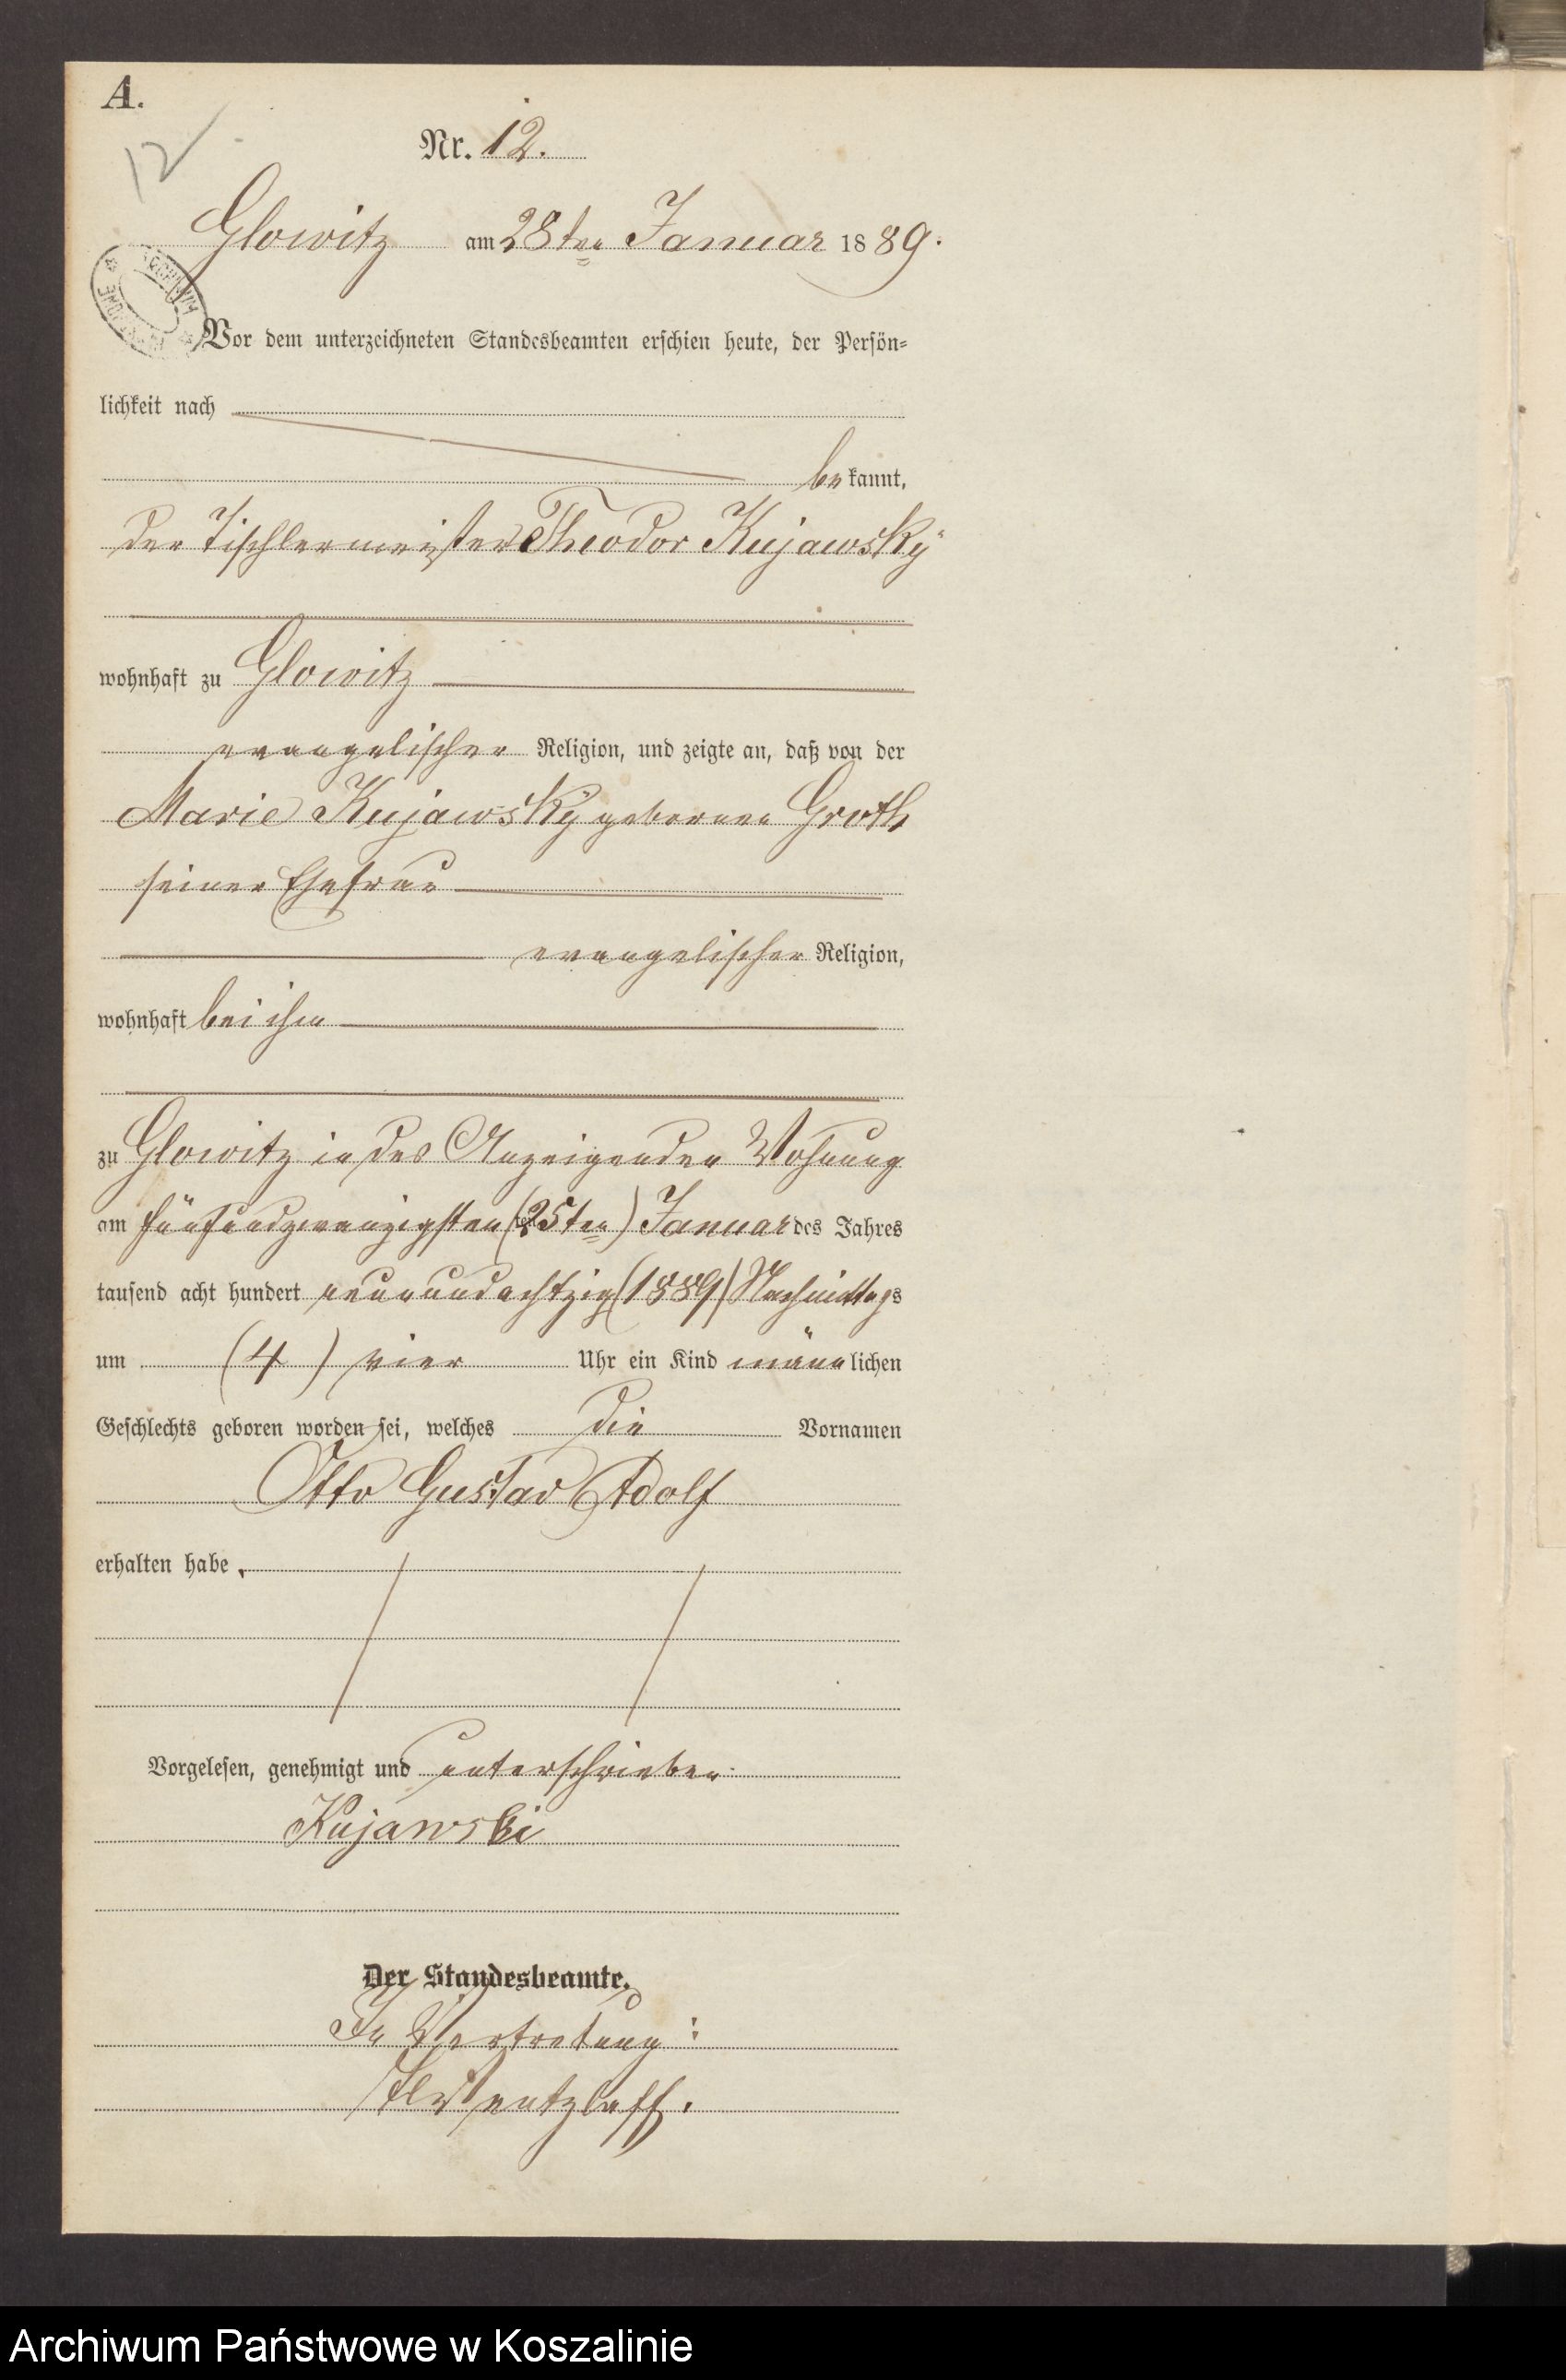 A.
12
Nr. 12.
Glowitz am 28ten Januar 1889.
Vor dem unterzeichneten Standesbeamten erschien heute, der Persön-
lichkeit nach
bekannt,
der Tischlermeister Theodor Kujawsky
wohnhaft zu Glowitz
evangelischer Religion, und zeigte an, daß von der
Marie Kujawsky geborenen Groth
seiner Ehefrau
evangelischer Religion,
wohnhaft bei ihm
zu Glowitz in des Anzeigenden Wohnung
am fünfundzwanzigsten (25ten) Januar des Jahres
tausend acht hundert neunundachtzig (1889) Nachmittags
um (4) vier Uhr ein Kind männlichen
Geschlechts geboren worden sei, welches die Vornamen
Otto Gustav Adolf
erhalten habe.
Vorgelesen, genehmigt und unterschrieben
Kujawski
Der Standesbeamte.
In Vertretung:
Wentzlaff.
Archiwum Państwowe w Koszalinie